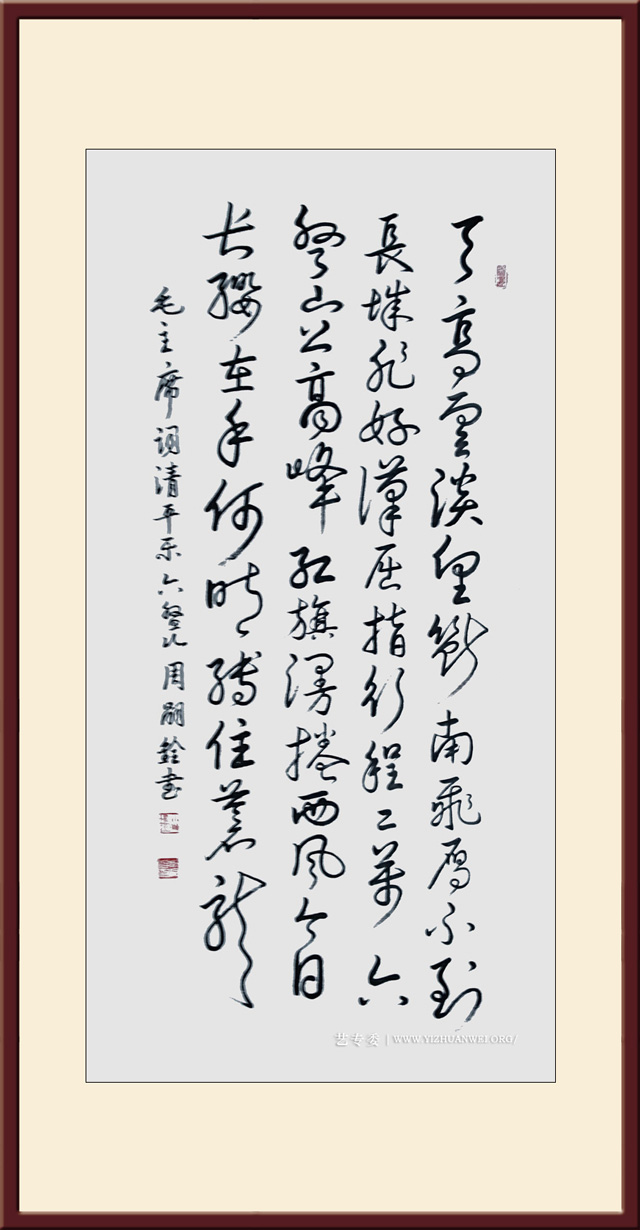 天高雲淡望斷南飛雁不到
長城非好漢屈指行程二萬六
盤山上高峰红旗漫捲西风今日
长纓在手何時縛住蒼龍
毛主席詞清平乐六盤山周嗣銓書
艺专委 | WWW.YIZHUANWEI.ORG/